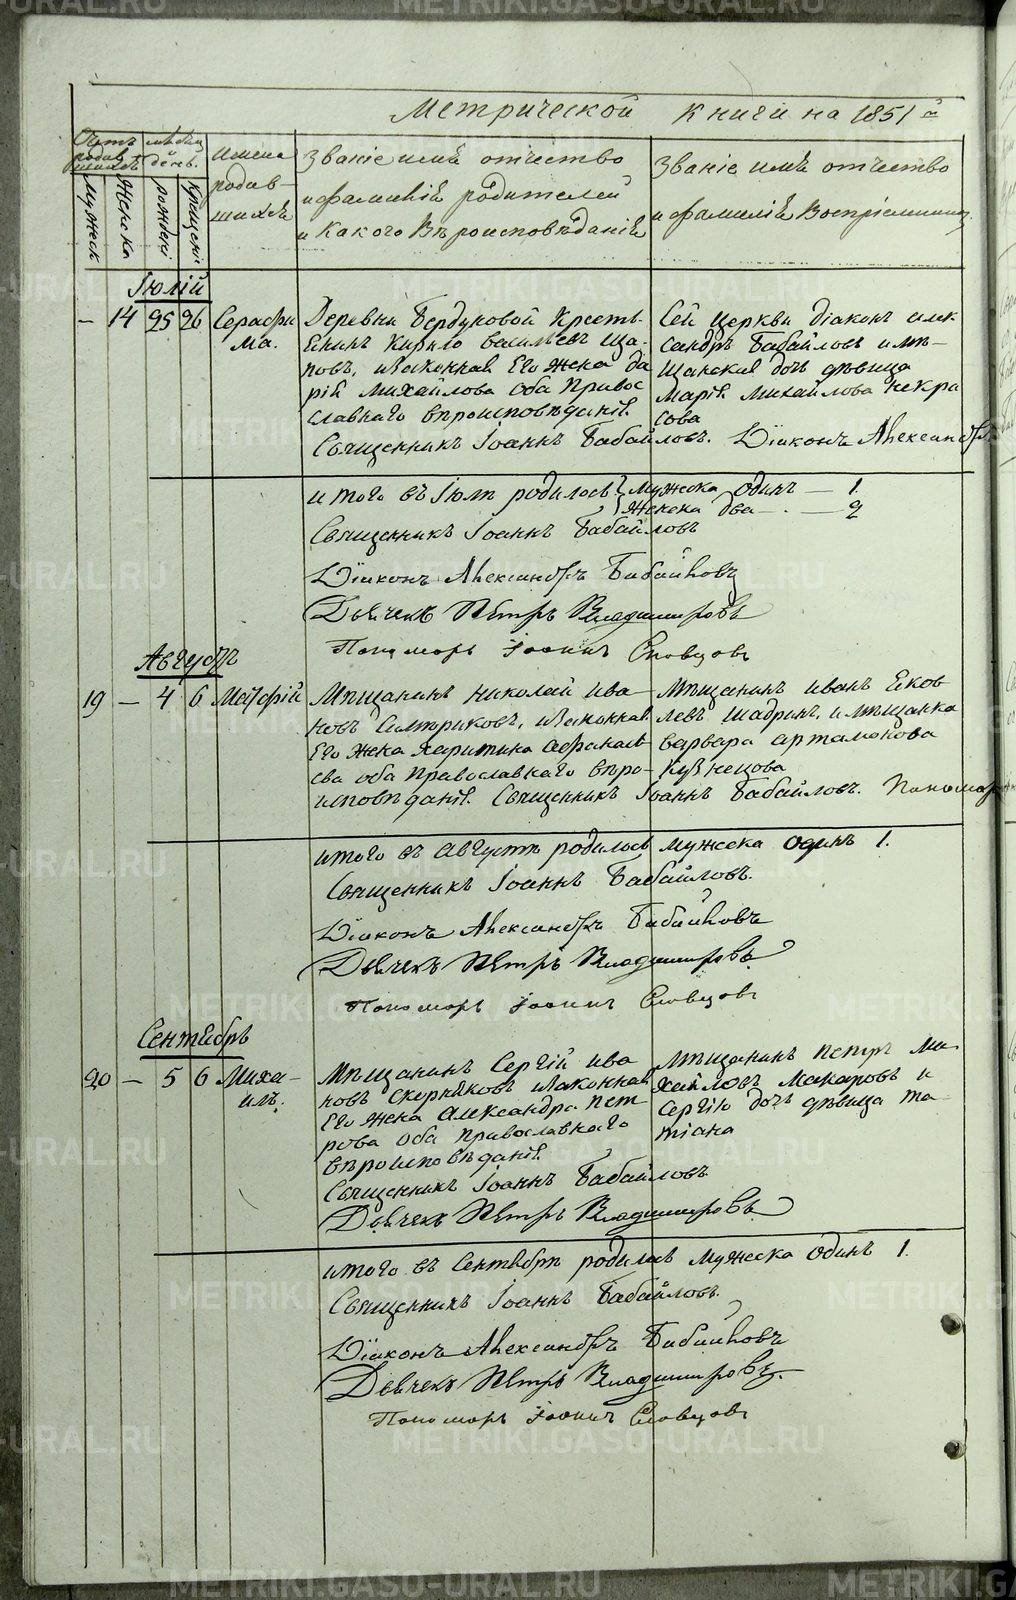 Метрической книги на 1851й
Счетъ родившихся
Мѣсяцъ и день.
Имена родив-
шихся
Мужеска
Женска
рожденія
крещенія
Званіе имя отчество
и фамилія родителей
и какого вѣроисповѣданія
Званіе имя отчество
и фамилія Воспріемник
Іюлій
— 14 25 26 Серафи
ма.
Деревни Бердуковой Кресть
енинъ Кирило Васильевъ Ща-
повъ, и законная Его жена Да
рія Михайлова оба Правос
славнаго вѣроисповѣданія.
Сей церкви Діаконъ Алек
сандръ Бабайловъ и мѣ-
щанская дочь дѣвица
Марія Михайлова Некра
сова
Священникъ Іоаннъ Бабайловъ. Діаконъ Александръ
итого въ Іюлѣ родилось Мужеска одинъ — 1.
Женска два — 2
Священникъ Іоаннъ Бабайловъ
Діаконъ Александръ Бабайловъ
Дьячекъ Петръ Владимировъ
Пономарь Іоаннъ Словцовъ
Августъ
19 — 4 6 Матфій
Мѣщанинъ Николай Ива-
новъ и законная
Его жена Харитина Афанась
ева оба Православнаго вѣро-
исповѣданія. Священникъ Іоаннъ Бабайловъ. Пономарь
Мѣщанинъ Иванъ Яков
левъ Шадринъ, и мѣщанка
Варвара Артамонова
Кузнецова
итого въ Августѣ родилось мужеска одинъ 1.
Священникъ Іоаннъ Бабайловъ.
Діаконъ Александръ Бабайловъ
Дьячекъ Петръ Владимировъ
Пономарь Іоаннъ Словцовъ
Сентябрь
20 — 5 6 Миха-
илъ.
Мѣщанинъ Сергій Ива
новъ Скорняковъ и законная
Его жена Александра Пет
рова оба православнаго
вѣроисповѣданія.
Мѣщанинъ Петръ Ми-
хайловъ Макаровъ и
Сергію дочь дѣвица Та-
тіана
Священникъ Іоаннъ Бабайловъ
Дьячекъ Петръ Владимировъ
итого въ Сентябрѣ родилось Мужеска Одинъ 1.
Священникъ Іоаннъ Бабайловъ.
Діаконъ Александръ Бабайловъ
Дьячекъ Петръ Владимировъ.
Пономарь Іоаннъ Словцовъ
METRIKI.GASO-URAL.RU